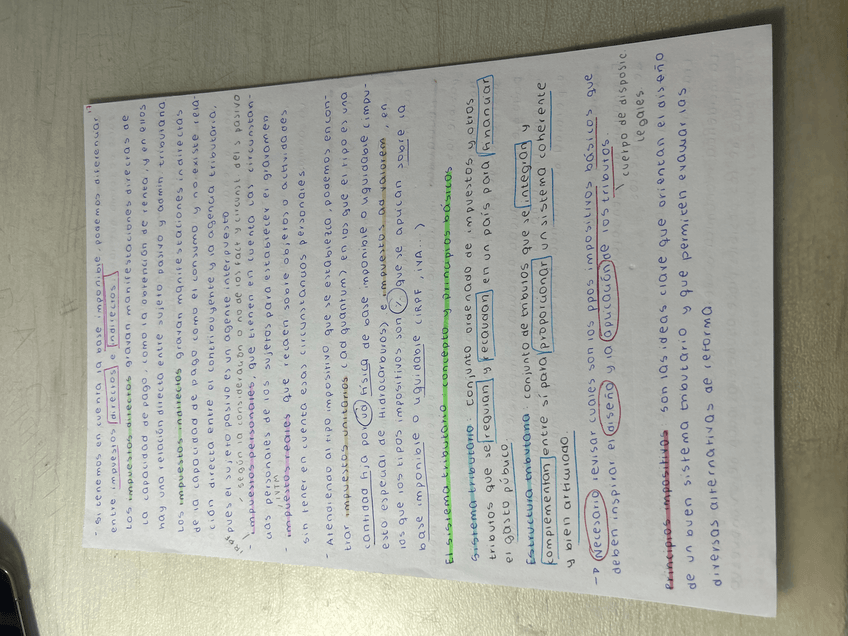 - Si tenemos en cuenta la base imponible, podemos diferenciar
entre impuestos directos e indirectos
Los impuestos directos gravan manifestaciones directas de
la capacidad de pago, como la obtención de renta, y en ellos
hay una relación directa entre sujeto pasivo y admin. tributaria
Los impuestos indirectos gravan manifestaciones indirectas
de la capacidad de pago como el consumo y no existe rela-
ción directa entre el contribuyente y la agencia tributaria,
pues el sujeto pasivo es un agente interpuesto
según la consideración o no de los fact y circunst del s pasivo
- Impuestos personales, que tienen en cuenta las circunstan-
cias personales de los sujetos para establecer el gravamen
- Impuestos reales que recaen sobre objetos o actividades
sin tener en cuenta esas circunstancias personales
- Atendiendo al tipo impositivo que se establezca, podemos encon-
trar impuestos unitarios (ad quantum) en los que el tipo es una
cantidad fija por ud física de base imponible o liquidable (impu-
esto especial de Hidrocarburos) e impuestos ad valorem, en
los que los tipos impositivos son % que se aplican sobre la
base imponible o liquidable (IRPF, IVA...)
El sistema tributario: concepto y principios básicos
Sistema tributario: conjunto ordenado de impuestos y otros
tributos que se regulan y recaudan en un país para financiar
el gasto público.
Estructura tributaria: conjunto de tributos que se integran y
complementan entre sí para proporcionar un sistema coherente
y bien articulado.
→ Necesario revisar cuales son los ppos impositivos básicos que
deben inspirar el diseño y la aplicación de los tributos.
cuerpo de disposic.
legales
Principios impositivos son las ideas clave que orientan el diseño
de un buen sistema tributario y que permiten evaluar las
diversas alternativas de reforma